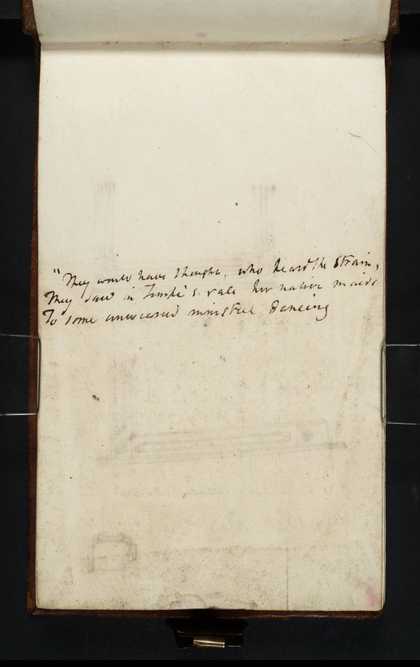 "They would have thought, who heard the Strain,
They saw in Tempe's vale her native maids
To some unwearied minstrel dancing